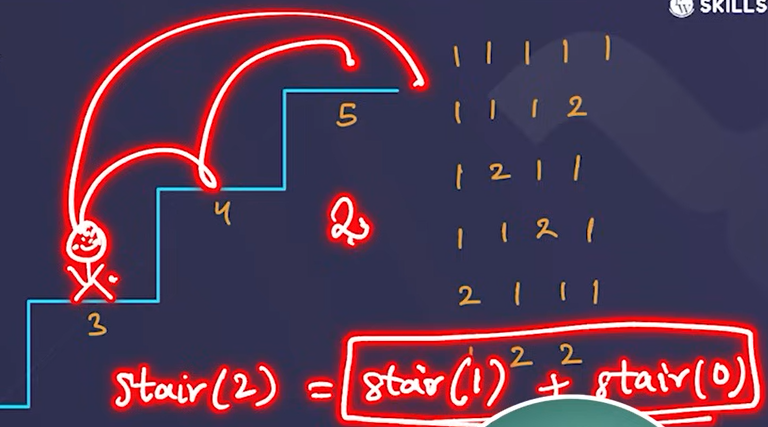 SKILLS
1 1 1 1 1
5
1 1 1 2
1 2 1 1
4
2
1 1 2 1
2 1 1 1
3
1 2 2
stair(2) = stair(1) + stair(0)